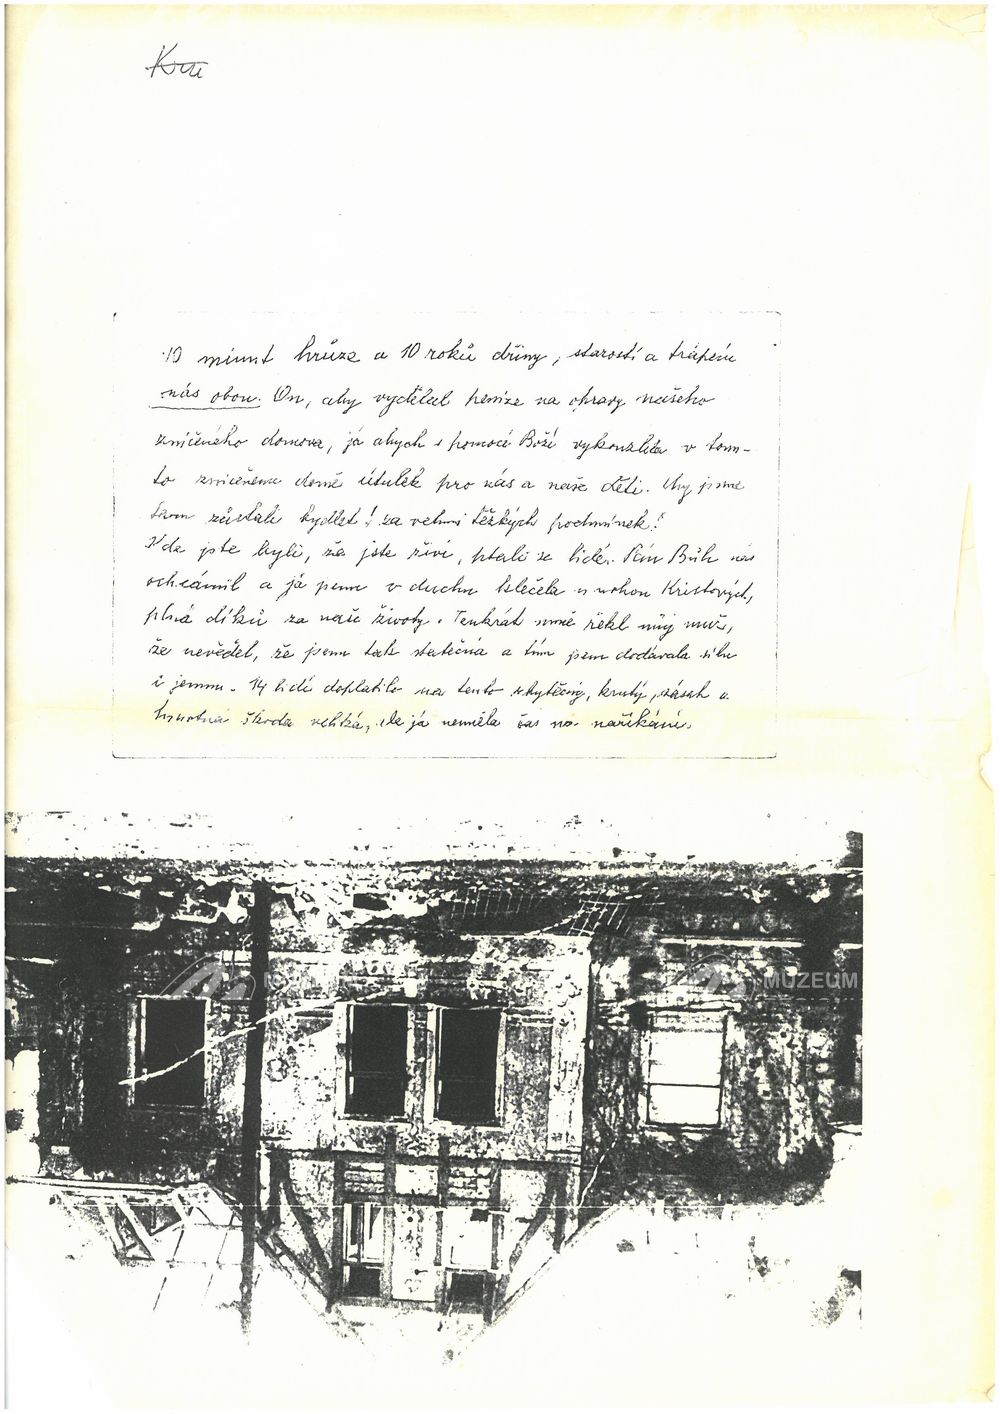 10 minut hrůze a 10 roků dřiny, starostí a trápení
nás obou. On, aby vydělal peníze na opravy našeho
zničeného domova, já abych s pomocí Boží vykouzlila v tom-
to zničeném domě útulek pro nás a naše děti. My jsme
tam zůstali bydlet! za velmi těžkých podmínek!
Kde jste byli, že jste živi, ptali se lidé. Pán Bůh nás
ochránil a já jsem v duchu klečela u nohou Kristových,
plná díků za naše životy. Tenkrát mně řekl můj muž,
že nevěděl, že jsem tak statečná a tím jsem dodávala sílu
i jemu. 14 lidí doplatilo na tento zbytečný, krutý, zásah a
hmotná škoda velká, ale já neměla čas na naříkání.
MUZEUM